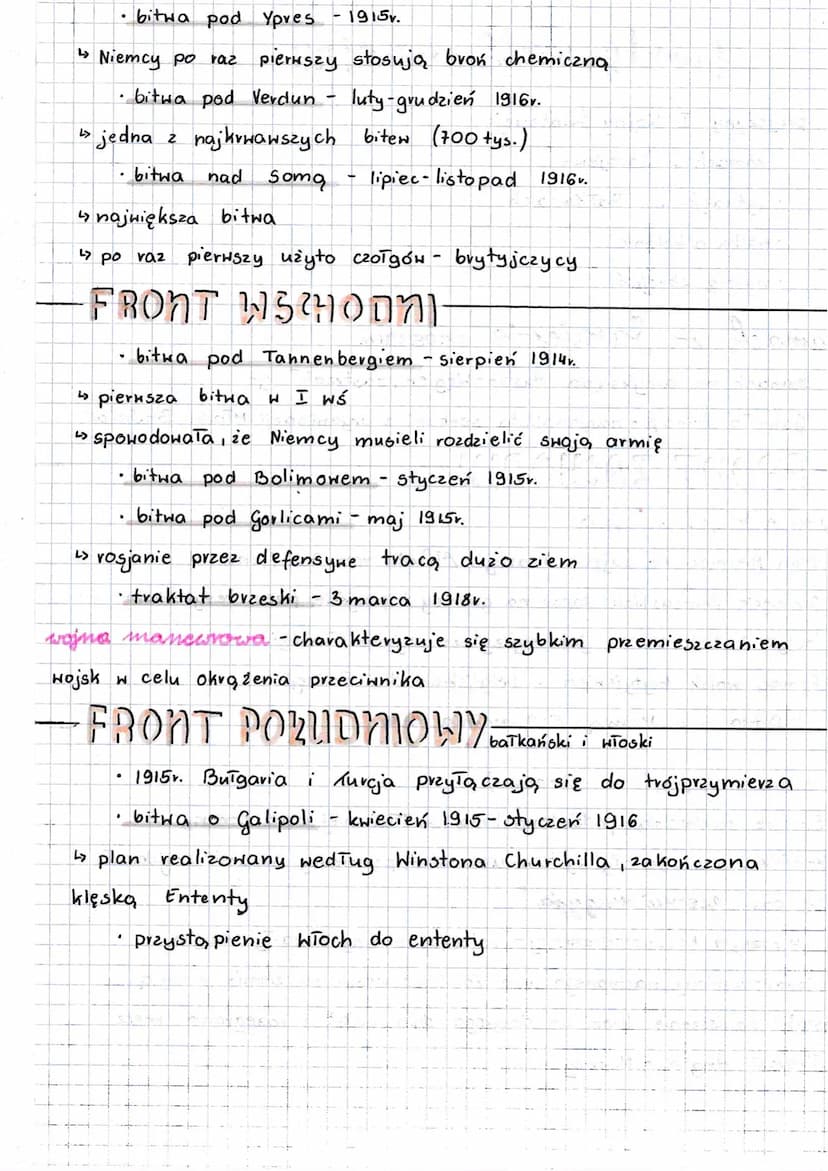 · bitwa pod Ypres - 1915r.
↳ Niemcy po raz pierwszy stosują broń chemiczną
· bitwa pod Verdun - luty-grudzień 1916r.
↳ jedna z najkrwawszych bitew (700 tys.)
· bitwa nad Sommą - lipiec-listopad 1916r.
↳ największa bitwa
↳ po raz pierwszy użyto czołgów - brytyjczycy
FRONT WSCHODNI
· bitwa pod Tannenbergiem - sierpień 1914r.
↳ pierwsza bitwa w I wś
↳ spowodowała, że Niemcy musieli rozdzielić swoją armię
· bitwa pod Bolimowem - styczeń 1915r.
· bitwa pod Gorlicami - maj 1915r.
↳ rosjanie przez defensywe tracą dużo ziem
· traktat brzeski - 3 marca 1918r.
wojna manewrowa - charakteryzuje się szybkim przemieszczaniem
wojsk w celu okrążenia przeciwnika
FRONT POŁUDNIOWY bałkański i włoski
· 1915r. Bułgaria i Turcja przyłączają się do trójprzymierza
· bitwa o Galipoli - kwiecień 1915-styczeń 1916
↳ plan realizowany według Winstona Churchilla, zakończona
klęską Ententy
· przystąpienie włoch do ententy